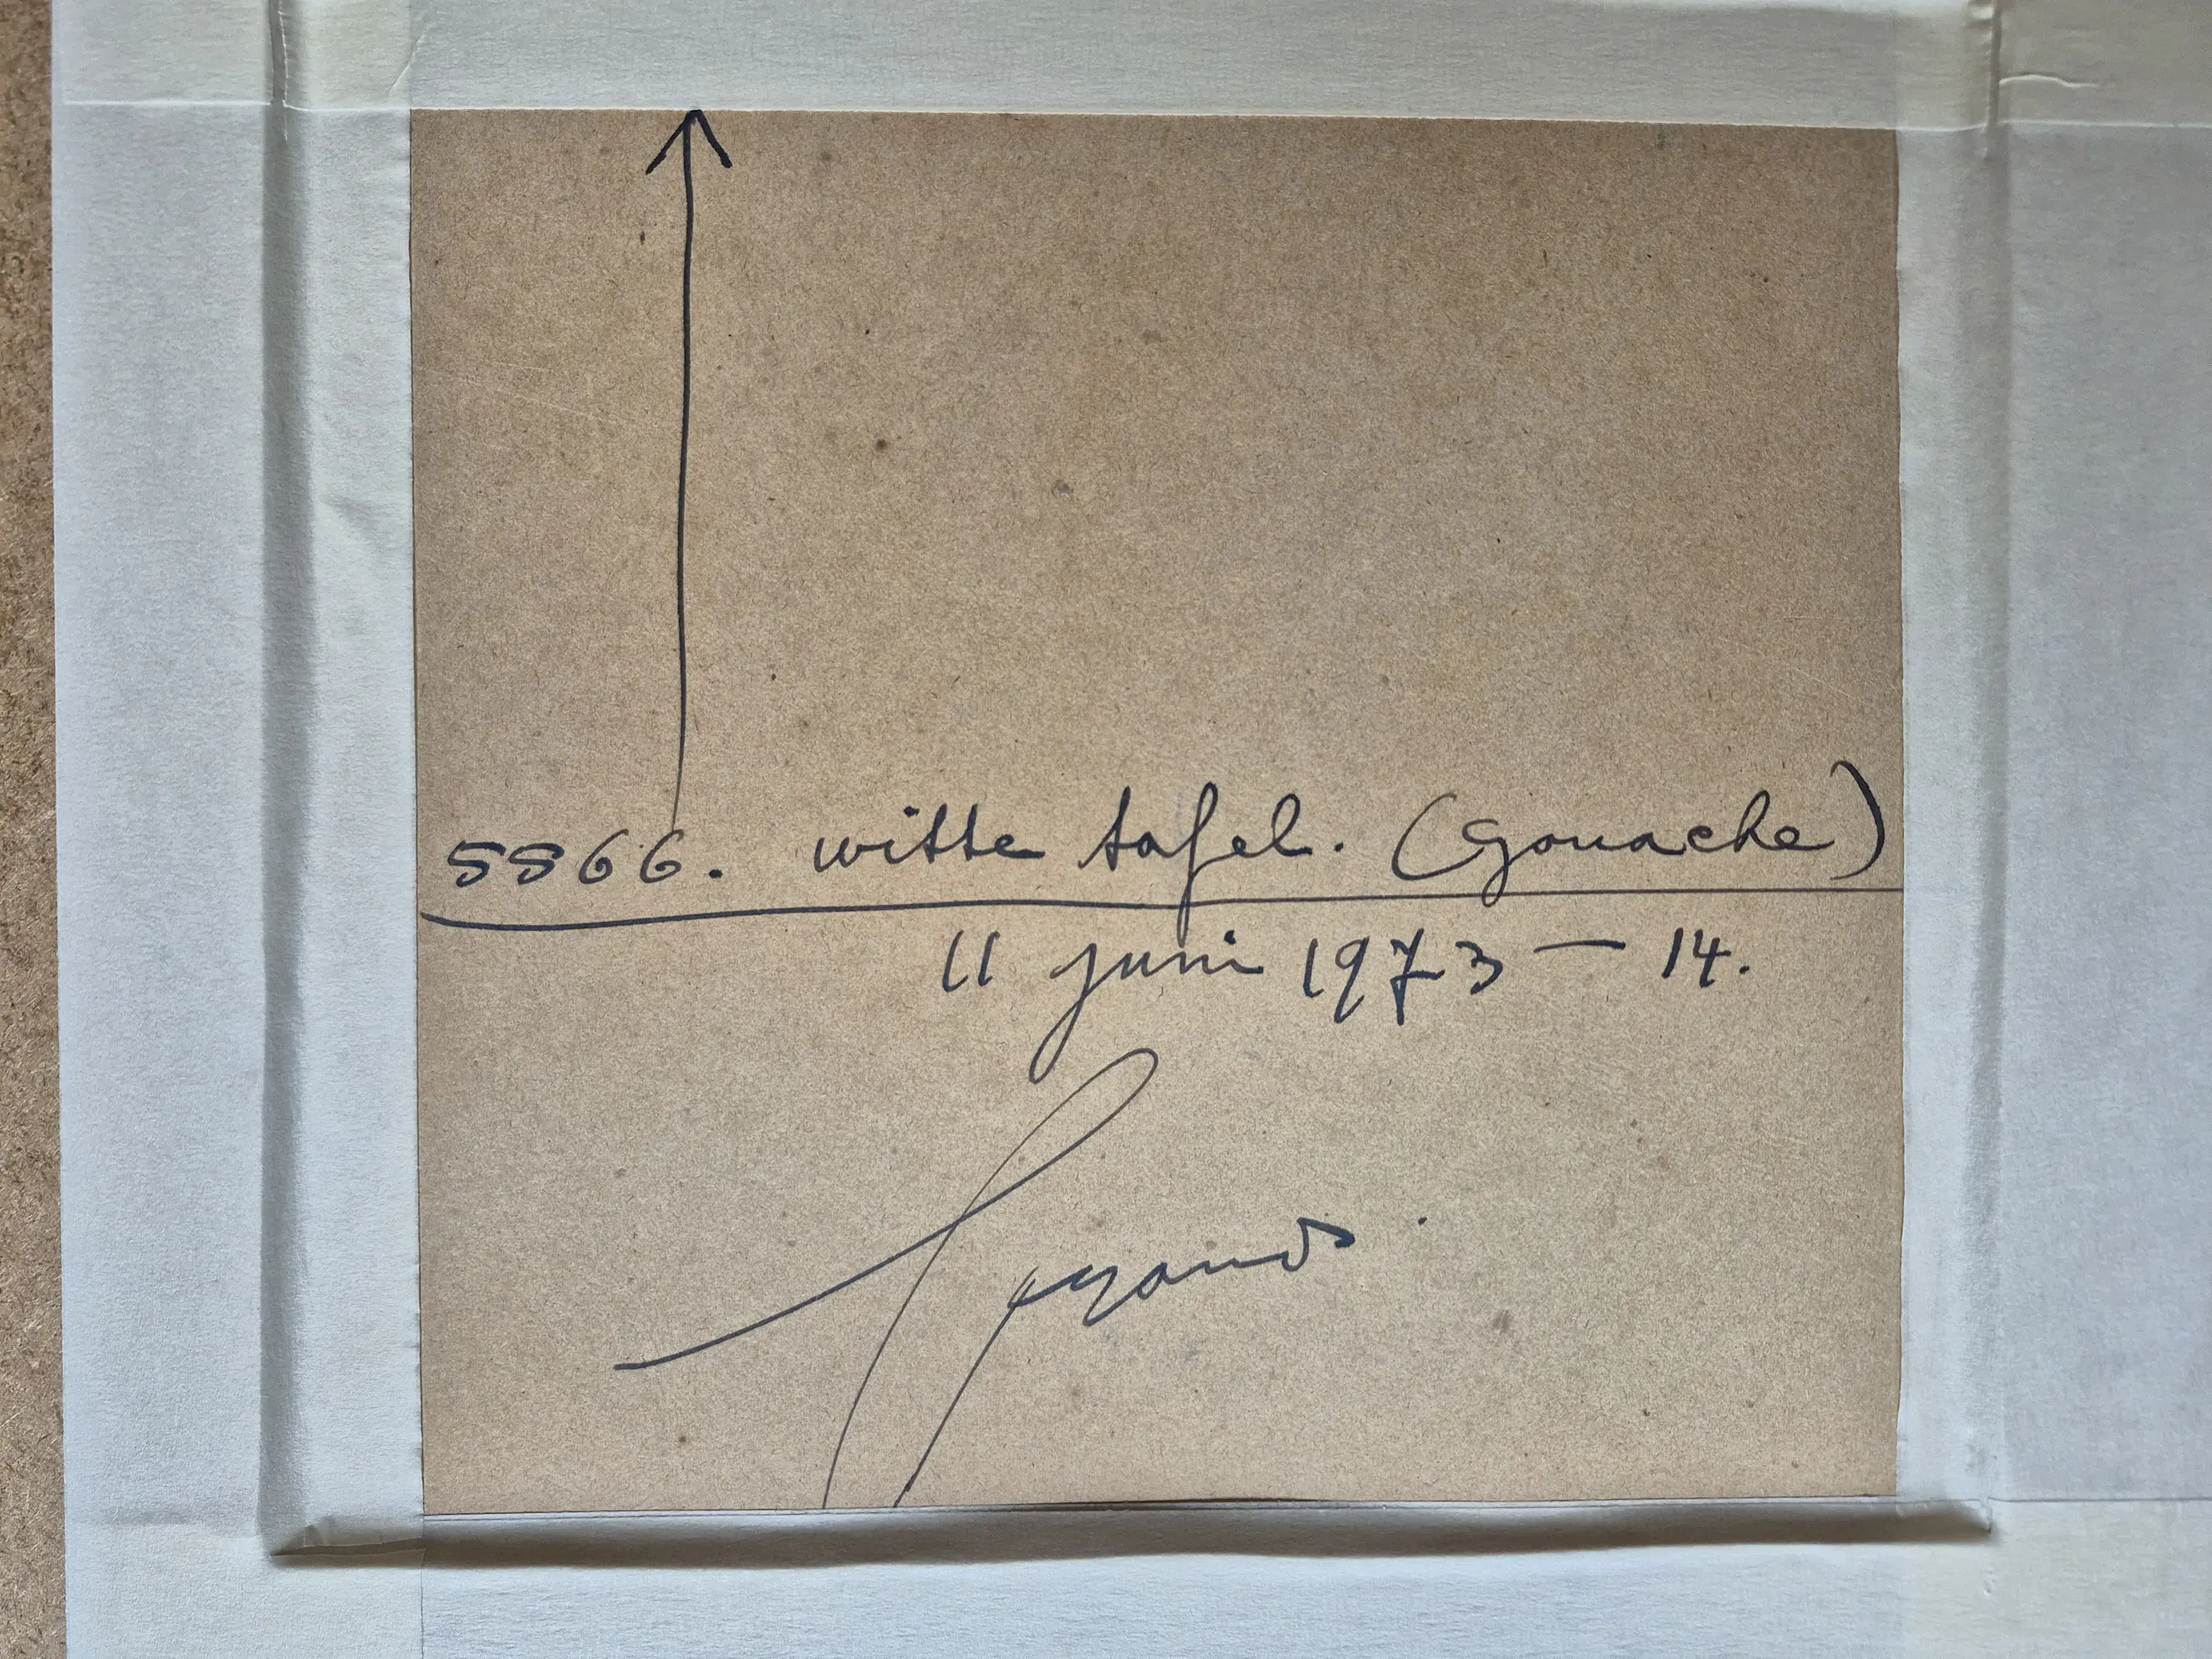 5566. witte tafel. (gouache)
11 juni 1973 — 14.